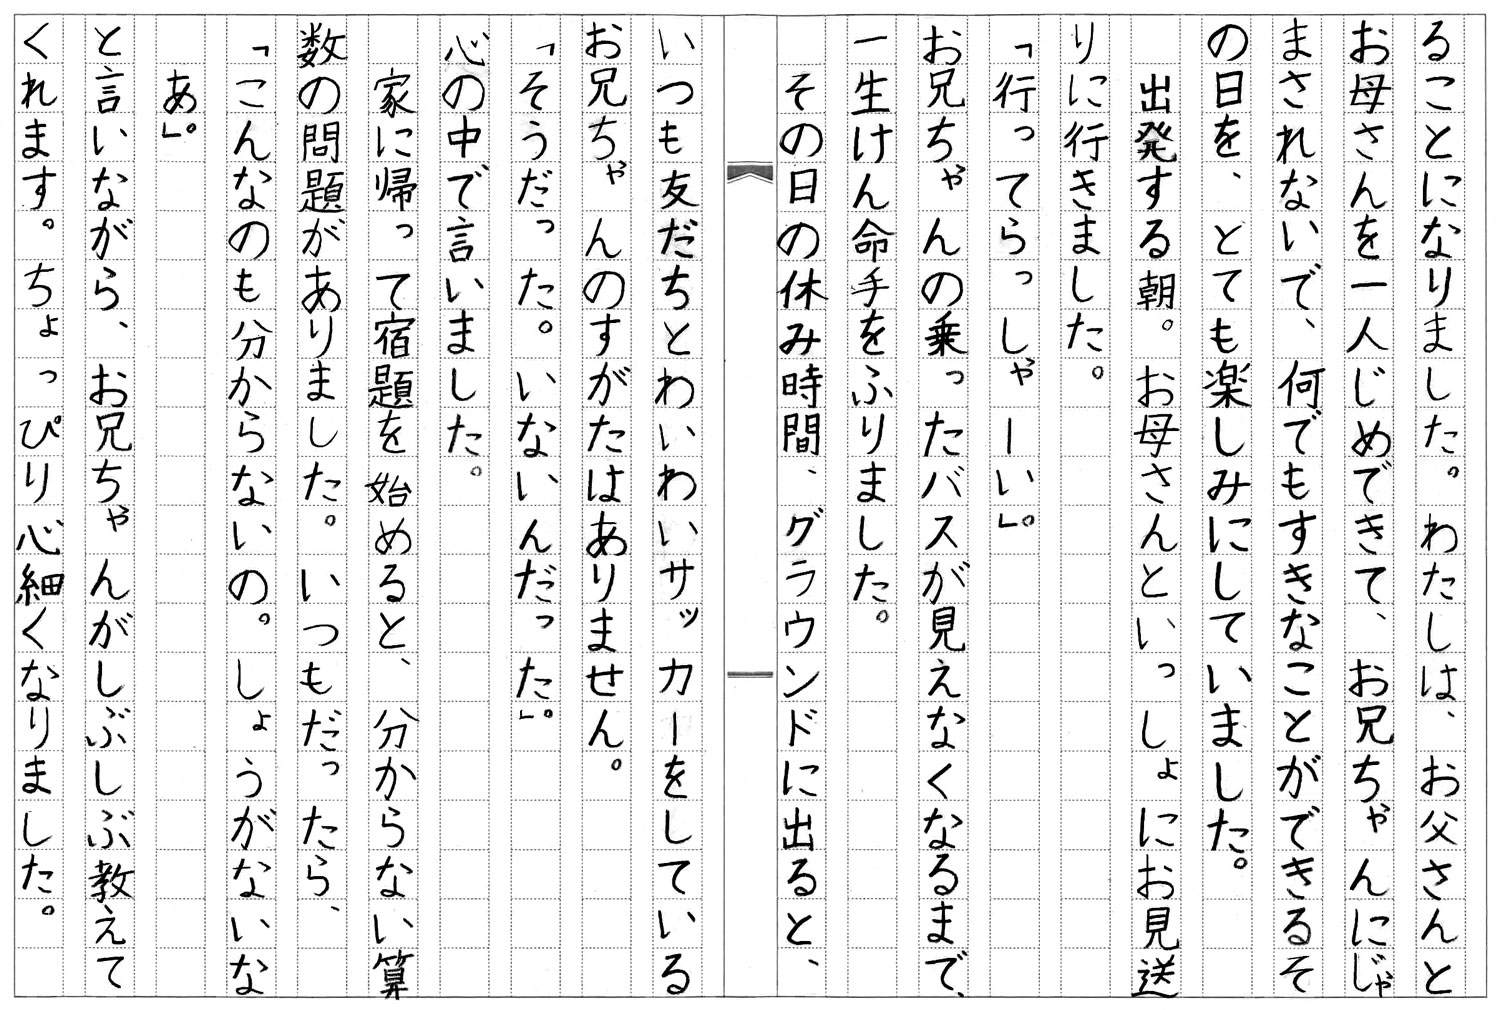 ることになりました。わたしは、お父さんと
お母さんを一人じめできて、お兄ちゃんにじゃ
まされないで、何でもすきなことができるそ
の日を、とても楽しみにしていました。
出発する朝。お母さんといっしょにお見送
りに行きました。
「行ってらっしゃーい」。
お兄ちゃんの乗ったバスが見えなくなるまで、
一生けん命手をふりました。
その日の休み時間、グラウンドに出ると、
いつも友だちとわいわいサッカーをしている
お兄ちゃんのすがたはありません。
「そうだった。いないんだった」。
心の中で言いました。
家に帰って宿題を始めると、分からない算
数の問題がありました。いつもだったら、
「こんなのも分からないの。しょうがないな
あ」。
と言いながら、お兄ちゃんがしぶしぶ教えて
くれます。ちょっぴり心細くなりました。